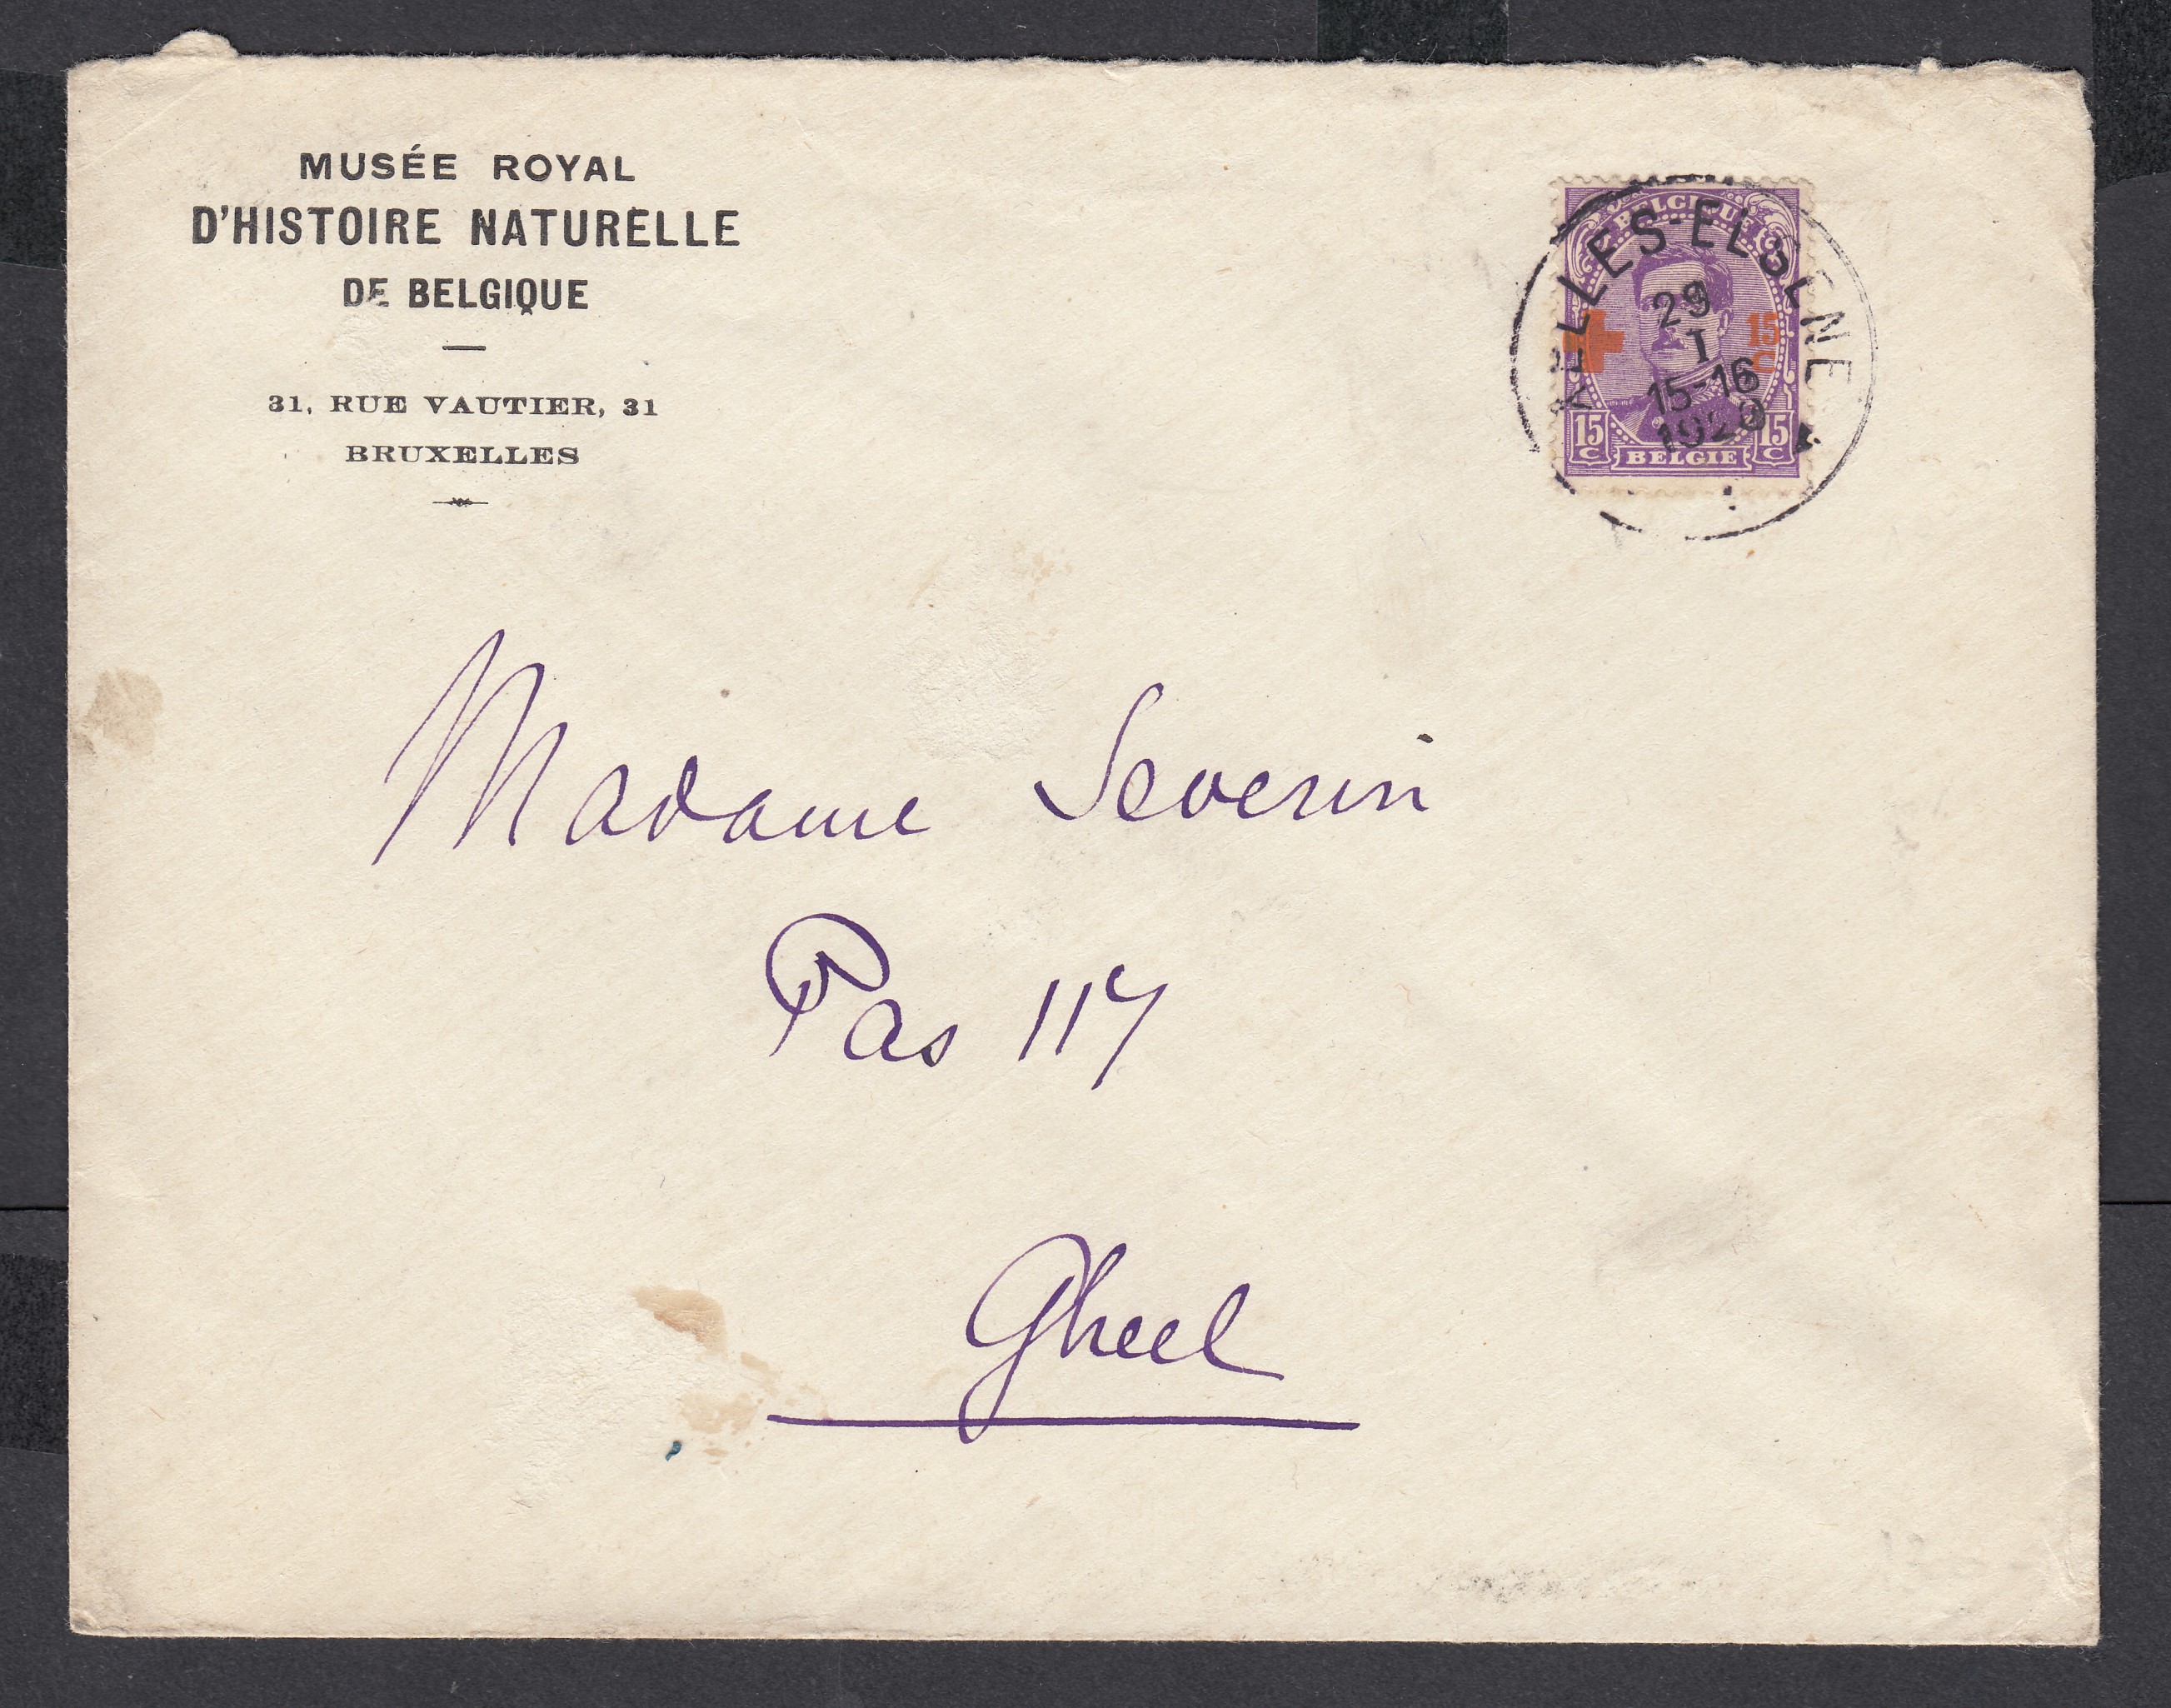 MUSÉE ROYAL
D'HISTOIRE NATURELLE
DE BELGIQUE
31, RUE VAUTIER, 31
BRUXELLES
BELGIQUE
ELLES-ELSENE
29
I
15-16
1920
15
C
15
C
BELGIE
15
C
Madame Severin
Pas 117
Gheel